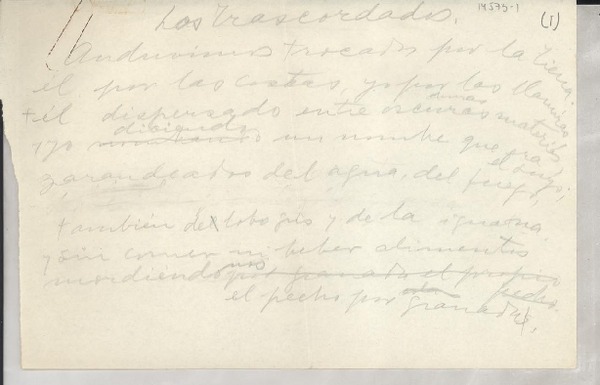 14575-1
(1)
Los Trascordados.
Anduvimos trocados por la Tierra
él por las costas, yo por las llanuras
+ él dispersado entre oscuras dunas materiales
dibujando
+ yo un nombre que era el suyo;
zarandeados del agua, del fuego,
también del lobo gris y de la iguana
y sin comer ni beber alimentos
mordiéndonos por granada el propio pecho.
el pecho por granada.